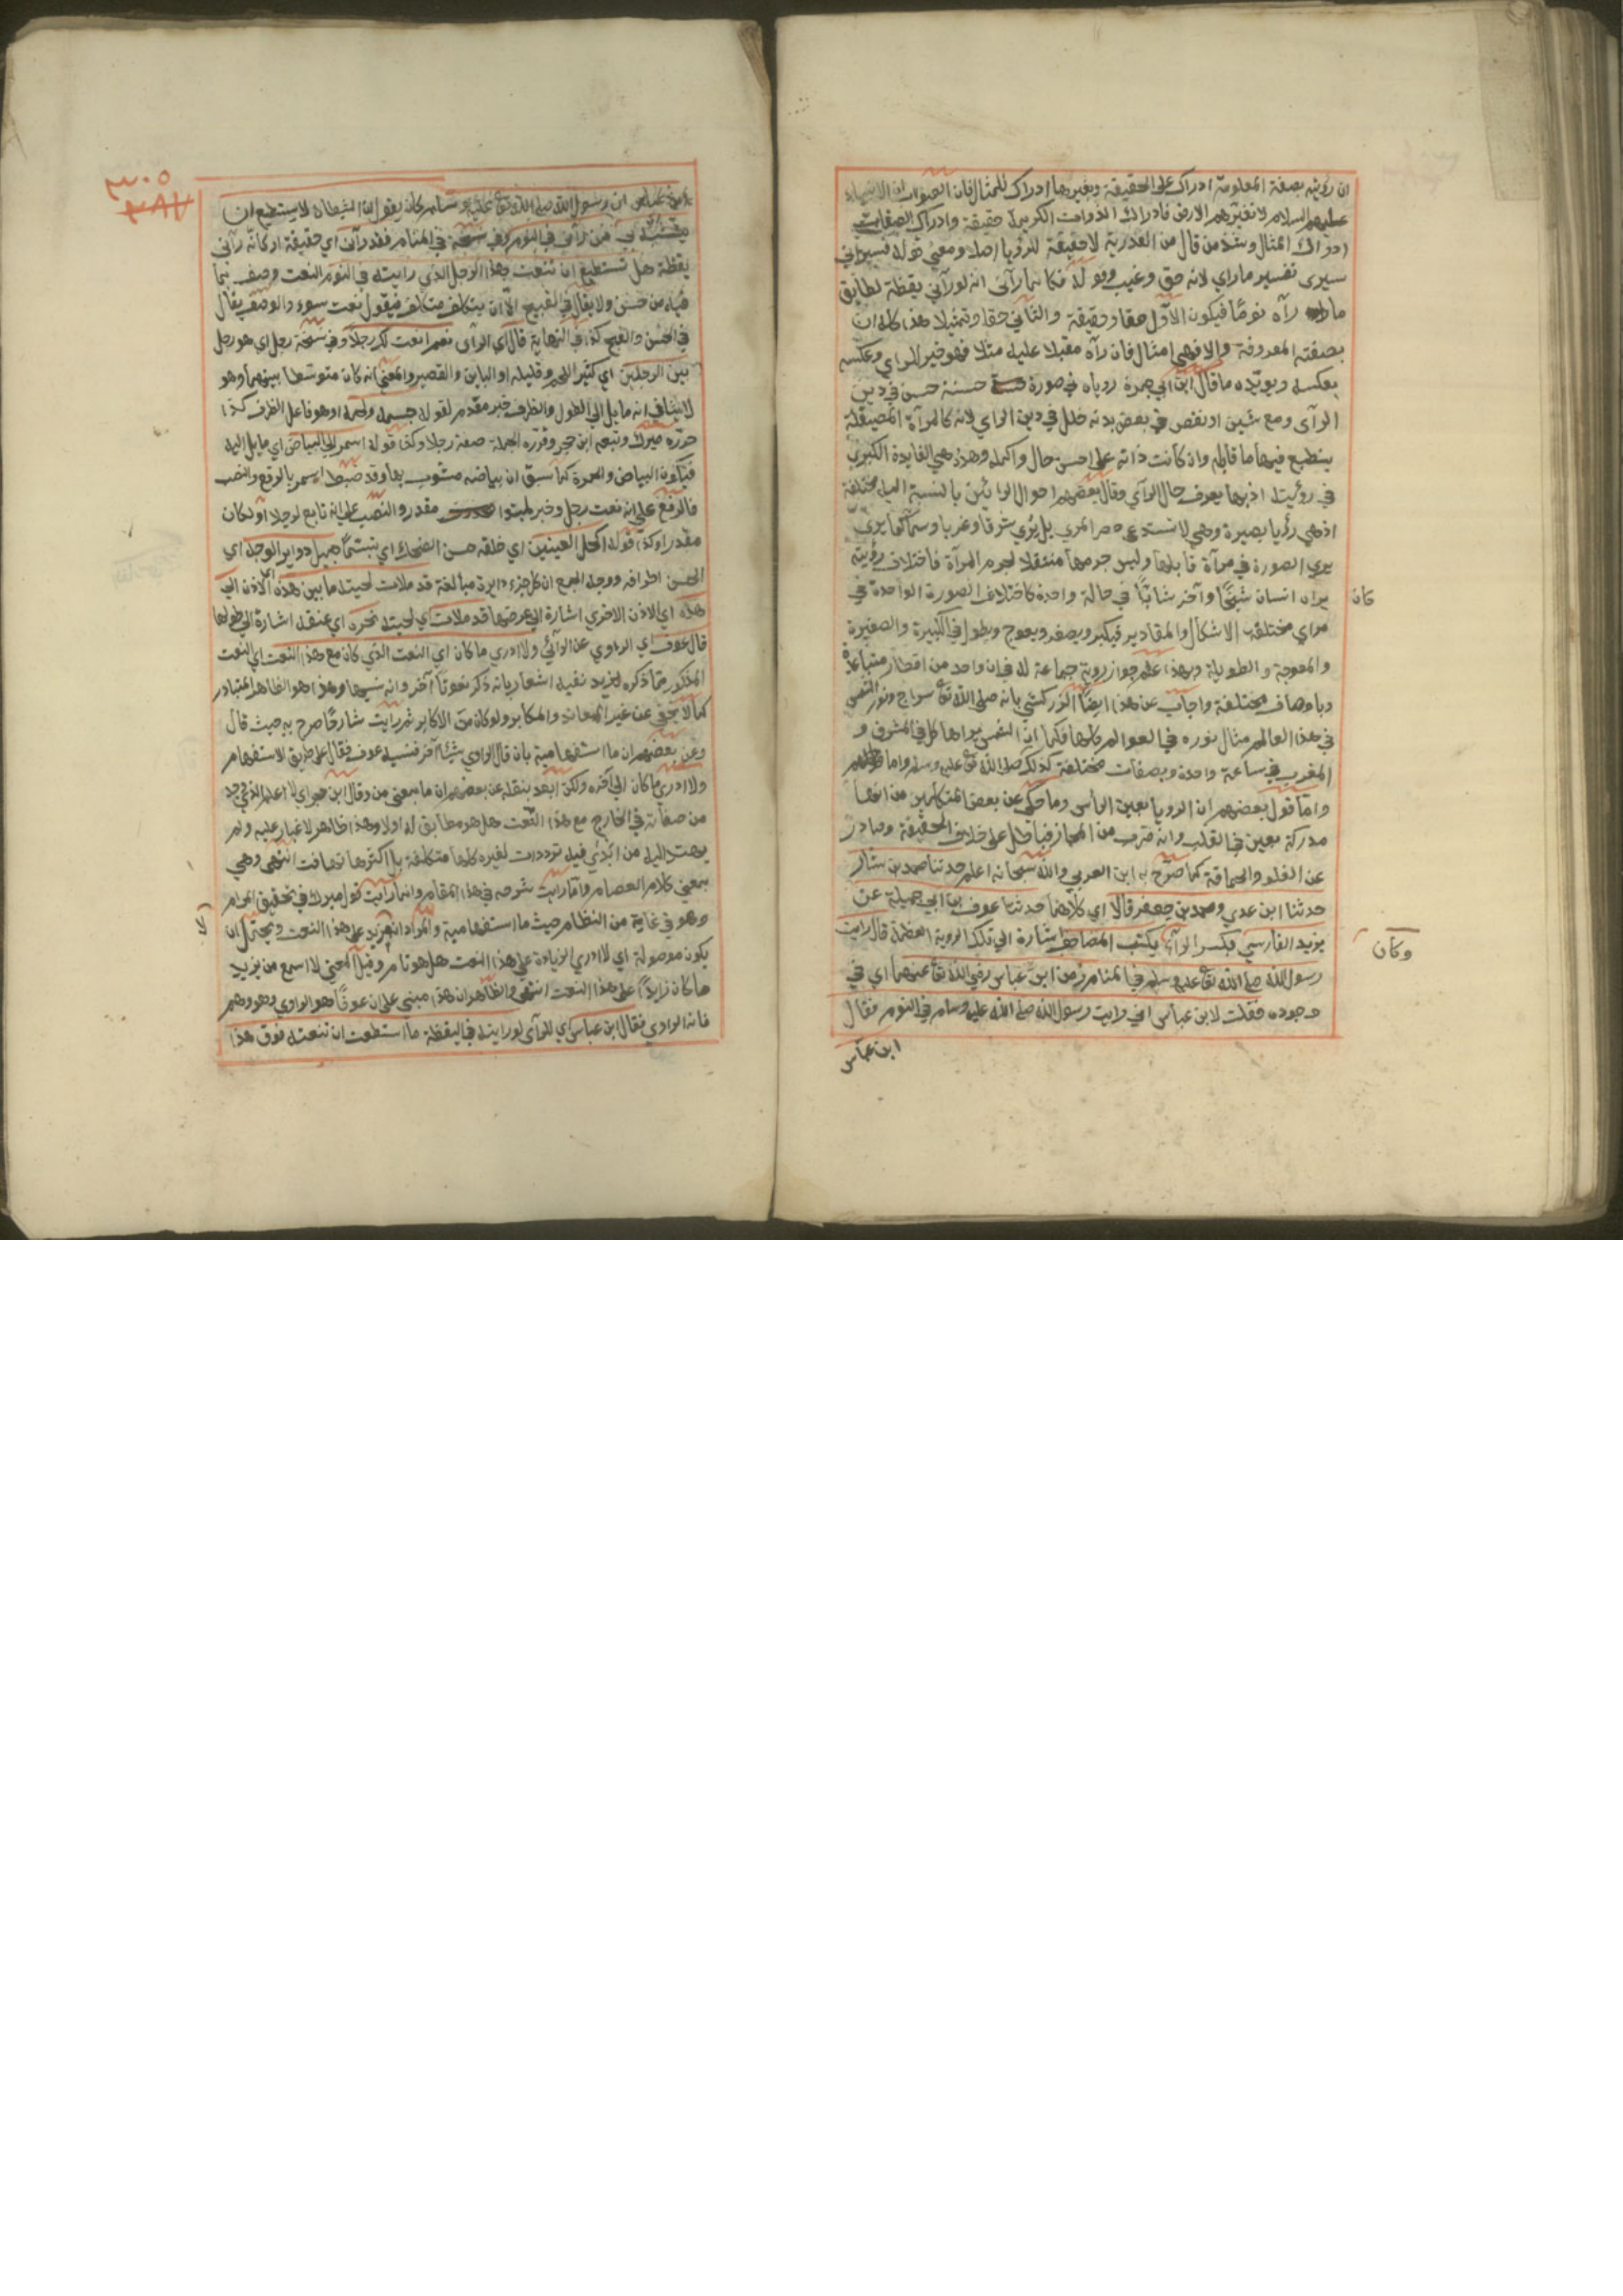 ان رؤيته بصفته المعلومة ادراك على الحقيقة وبغيرها ادراك للمثال فان الصواب ان الانبياء
عليهم السلام لا تغيرهم الارض فادراك الذات الكريمة حقيقة وادراك الصفات
ادراك المثال وشذ من قال من القدرية لا حقيقة للرؤيا اصلا ومعنى قوله فسيراني
سيرى تفسير ما راي لانه حق وغيب وقوله فكانما رآني انه لو رآني يقظة لطابق
ما رآه نوما فيكون الاول حقا وحقيقة والثاني حقا وتمثيلا هذا كله ان
بصفته المعروفة والا فهي امثال فان رآه مقبلا عليه مثلا فهو خير للراي وعكسه
بعكسه ويؤيده ما قال ابن ابي جمرة روياه في صورة حسنة حسن في دين
الرآى ومع شين او نقص في بعض بدنه خلل في دين الراي لانه كالمرآة المصيقلة
ينطبع فيها ما قابله وان كانت ذاته على احسن حال واكمله وهذه هي الفايدة الكبرى
في رؤيته اذ بها يعرف حال الرآي وقال بعضهم احوال الرائين بالنسبة اليه مختلفة
اذ هي رؤيا بصيرة وهي لا تستدعي حصر المري بل يرى شرقا وغربا وسماء كما يرى
يرى الصورة في مرآة قابلها وليس جرمها منتقلا لجرم المرآة فاختلاف رؤيته
كان
يراه انسان شيخا وآخر شابا في حالة واحدة كاختلاف الصورة الواحدة في
مراي مختلفة الاشكال والمقادير فيكبر ويصغر ويعوج ويطول في الكبيرة والصغيرة
والمعوجة والطويلة وبهذا علم جواز روية جماعة له في ان واحد من اقطار متباعدة
وباوصاف مختلفة واجاب عن هذا ايضا الزركشي بانه صلى الله تع سراج ونور الشمس
في هذا العالم مثال نوره في العوالم كلها فكما ان الشمس يراها كل في المشرق و
المغرب في ساعة واحدة وبصفات مختلفة كذلك صلى الله تع عليه وسلم
واما قول بعضهم ان الرويا بعين الراس وما حكي عن بعض المتكلمين من انها
مدركة بعين في القلب وانه ضرب من المجاز فباطل على خلاف الحقيقة وصادر
عن الغلو والحماقة كما صرح به ابن العربي والله سبحانه اعلم حدثنا محمد بن بشار
حدثنا ابن عدي ومحمد بن جعفر قالا اي كلاهما حدثنا عوف بن ابي جميلة عن
يزيد الفارسي وكان يكتب المصاحف اشارة الي تلك الروية العظمة قال رايت
وكان
رسول الله صلى الله تع عليه وسلم في المنام زمن ابن عباس رضي الله تع عنهما اي في
وجوده فقلت لابن عباس اني رايت رسول الله صلى الله عليه وسلم في النوم فقال
ابن عباس
٣٠٥
ابن عباس ان رسول الله صلى الله تع عليه وسلم كان يقول ان الشيطان لا يستطيع ان
يتشبه بي فمن رآني في النوم وفي نسخة في المنام فقد رآني اي حقيقة او كانه رآني
يقظة هل تستطيع ان تنعت هذا الرجل الذي رايته في النوم النعت وصف بما
فيه من حسن ولا يقال في القبيح الا ان يتكلف متكلف فيقول نعت سوء والوصف يقال
في الحسن والقبح كذا في النهاية قال اي الرآى نعم انعت لك رجلا وفي نسخة رجل اي هو رجل
بين الرجلين اي كثير اللحم وقليله او الباين والقصير والمعنى انه كان متوسطا بينهما وهو
لا ينافي انه مايل الى الطول والظرف خبر مقدم لقوله جسمه ولحمه او هو فاعل الظرف كذا
حرره ميرك وتبعه ابن حجر وقرره الجملة صفة رجلا وكذا قوله اسمر الى البياض اي مايل اليه
فيكون البياض والحمرة كما سبق ان بياضه مشوب بها وقد ضبط اسمر بالرفع والنصب
فالرفع على انه نعت رجل وخبر لمبتدا مقدر والنصب على انه تابع لرجلا او لكان
مقدرا وكذا قوله اكحل العينين اي خلقة حسن الضحك اي تبسما جميل دواير الوجه اي
الحسن اطرافه ووجه الجمع ان كل جزء دايرة مبالغة قد ملات لحيته ما بين هذه اي الاذن الي
هذه اي الاذن الاخرى اشارة الى عرضها قد ملات اي لحيته نحره اي عنقه اشارة الى طولها
قال عوف اي الراوي عن الرآئى ولا ادري ما كان اي النعت الذي كان مع هذا النعت اي النعت
المذكور مما ذكره يزيد ففيه اشعار بانه ذكر نعوتا آخر وانه نسيها وهذا هو الظاهر المتبادر
كما لا يخفى عن غير المعاند والمكابر ولو كان من الاكابر ثم رايت شارحا صرح به حيث قال
وعن بعضهم ان ما استفهامية بان قال الراوي شيئا آخر فنسيه عوف فقال على طريق الاستفهام
ولا ادري ما كان الى آخره ولكن ابعد بنقله عن بعضهم ان ما بمعنى من وقال ابن حجر اي لا اعلم الذي وجد
من صفاته في الخارج مع هذا النعت هل هو مطابق له اولا وهذا ظاهر لا غبار عليه ولم
يهتد اليه من ابدى فيه ترددات لغيره كلها متكلفة بل اكثرها تهافت انتهى وهي
بمعنى كلام العصام وما رايت شرحه في هذا المقام وانما رايت قول ميرك في تحقيق المرام
وهو في غاية من النظام حيث ما استفهامية والمراد انه يزيد على هذا النعت ويحتمل ان
يكون موصولة اي لا ادري الزيادة على هذا النعت هل هو تام وقيل المعنى لا اسمع من يزيد
ما كان زايدا على هذا النعت انتهى والظاهر ان هذا مبني على ان عوفا هو الراوي وهو وهم
فانه الراوي فقال ابن عباس اي للرآى لو رايته في اليقظة ما استطعت ان تنعته فوق هذا